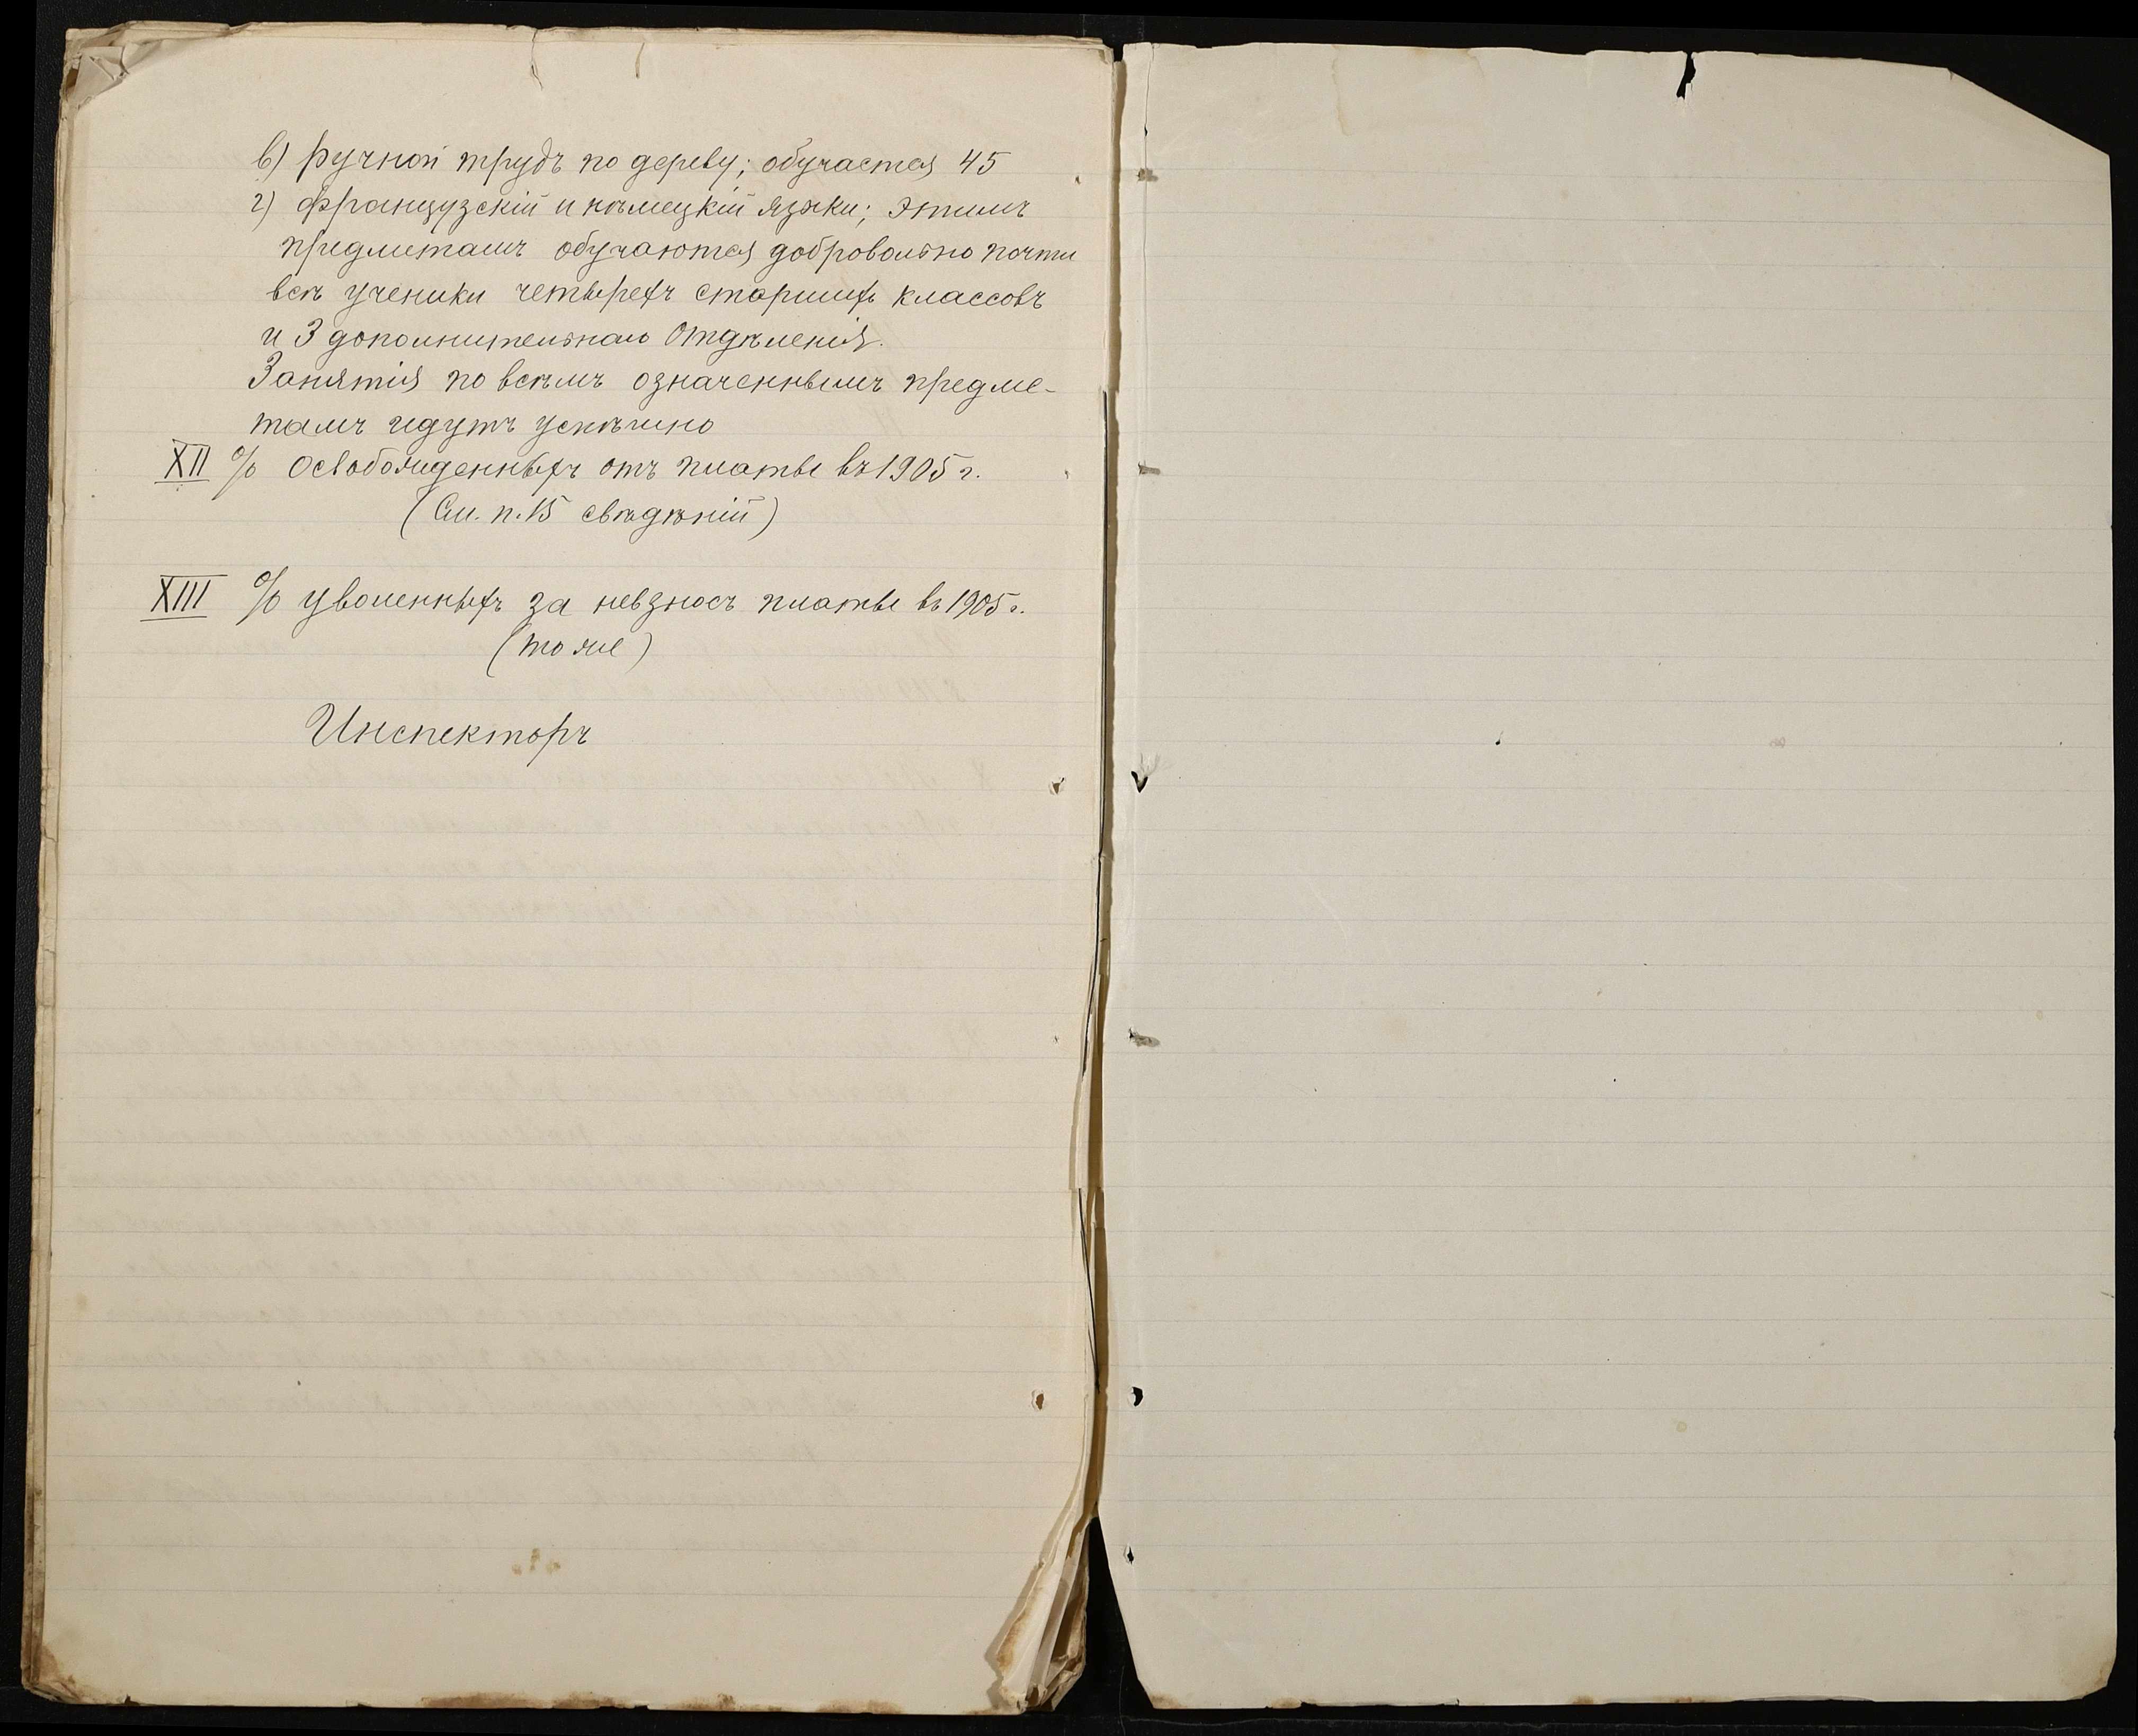 в) ручной трудъ по дереву; обучается 45
г) французскій и нѣмецкій языки; этимъ
предметамъ обучаются добровольно почти
всѣ ученики четырехъ старшихъ классовъ
и 3 дополнительнаго отдѣленія.
Занятія по всѣмъ означеннымъ предме-
тамъ идутъ успѣшно
XII % освобожденныхъ отъ платы въ 1905 г.
(См. п. 15 свѣдѣній)
XIII % уволенныхъ за невзносъ платы въ 1905 г.
(то же)
Инспекторъ